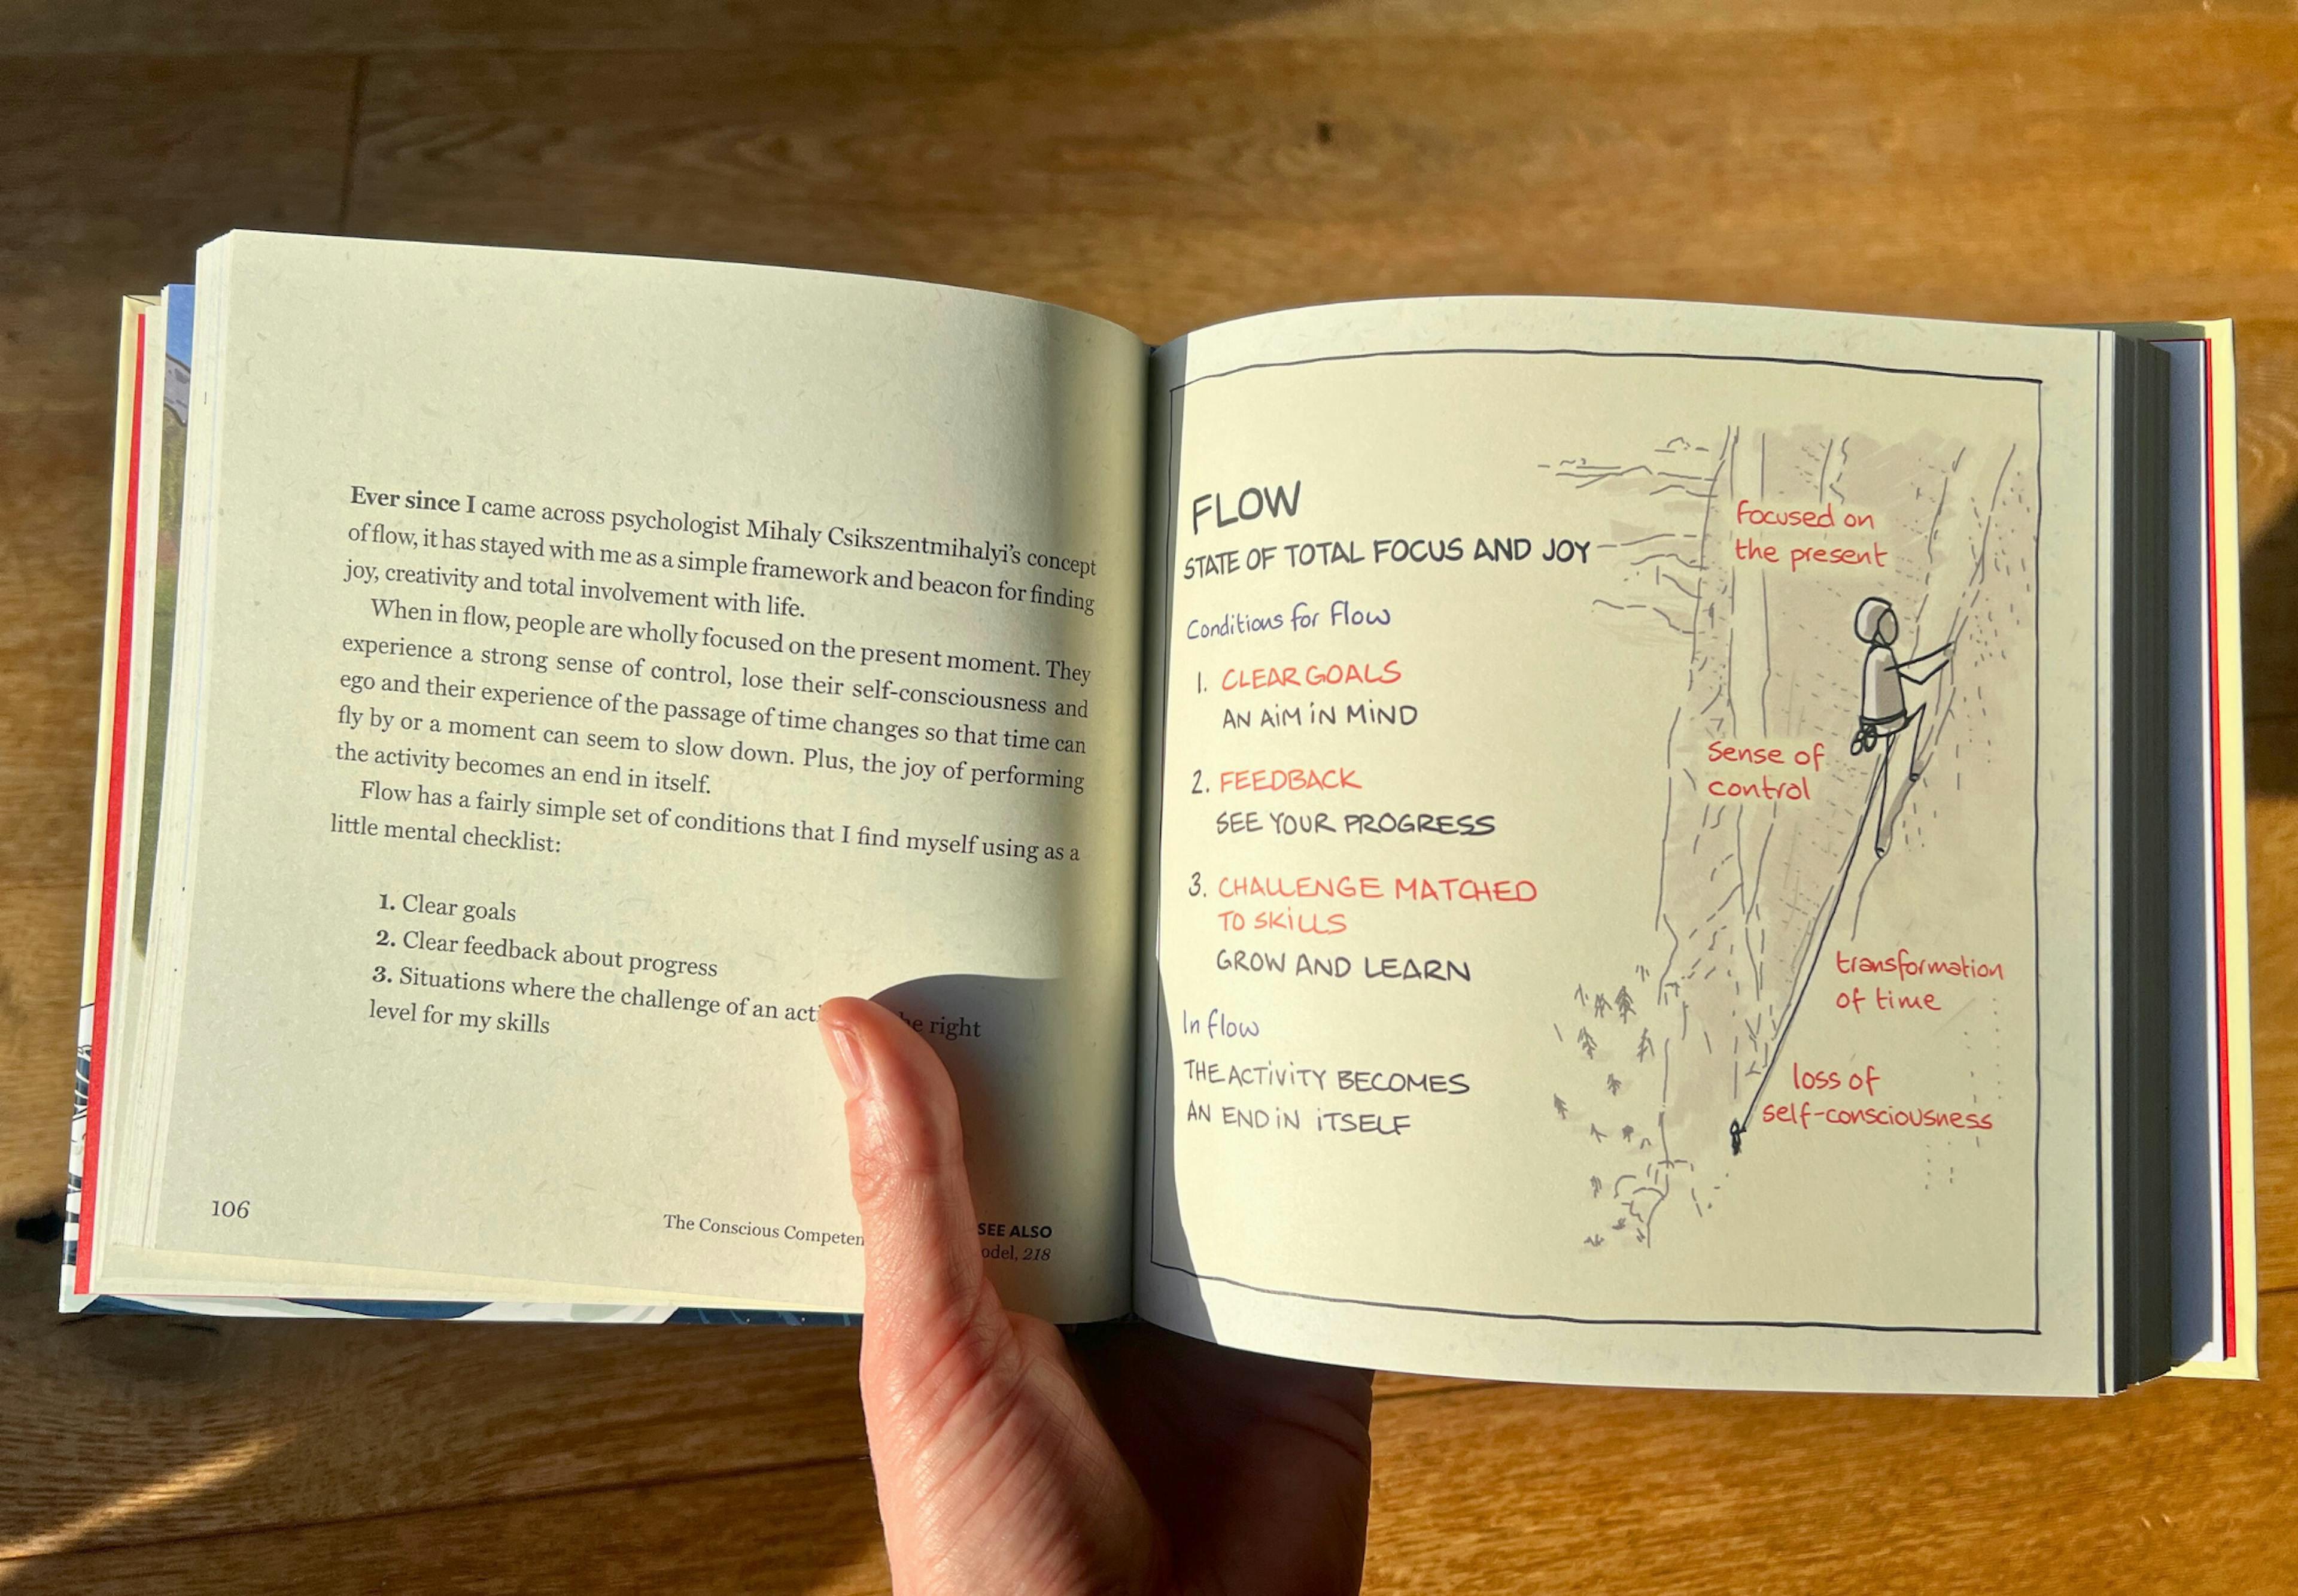 Ever since I came across psychologist Mihaly Csikszentmihalyi's concept
of flow, it has stayed with me as a simple framework and beacon for finding
joy, creativity and total involvement with life.
When in flow, people are wholly focused on the present moment. They
experience a strong sense of control, lose their self-consciousness and
ego and their experience of the passage of time changes so that time can
fly by or a moment can seem to slow down. Plus, the joy of performing
the activity becomes an end in itself.
Flow has a fairly simple set of conditions that I find myself using as a
little mental checklist:
1. Clear goals
2. Clear feedback about progress
3. Situations where the challenge of an right
level for my skills
106
SEE ALSO
The Conscious 218
FLOW
STATE OF TOTAL FOCUS AND JOY
Conditions for Flow
1. CLEAR GOALS
AN AIM IN MIND
2. FEEDBACK
SEE YOUR PROGRESS
3. CHALLENGE MATCHED
TO SKILLS
GROW AND LEARN
In flow
THE ACTIVITY BECOMES
AN END IN ITSELF
focused on
the present
sense of
control
transformation
of time
loss of
self-consciousness